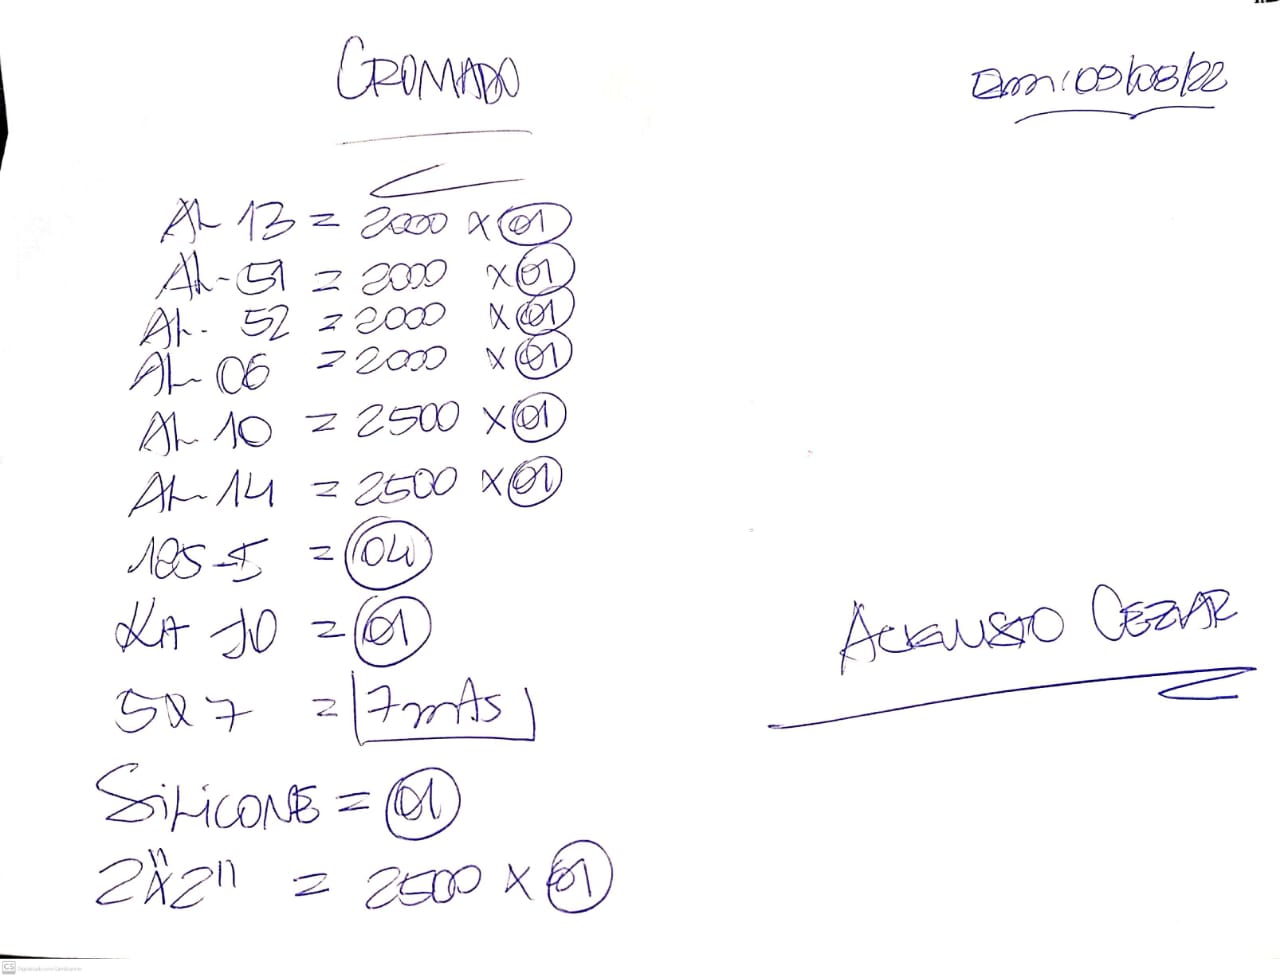 CROMADO
Em: 09/08/22
AL 13 = 2000 x 01
AL-51 = 2000 x 01
AL- 52 = 2000 x 01
AL- 06 = 2000 x 01
AL 10 = 2500 x 01
AL-14 = 2500 x 01
185-5 = 04
KA 10 = 01
5x7 = 7 mAs
SiLiCONE = 01
2"x2" = 2500 x 01
AUGUSTO CEZAR
CS